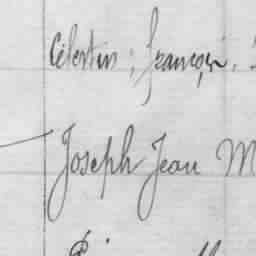 Célestin, françois,
Joseph Jean M